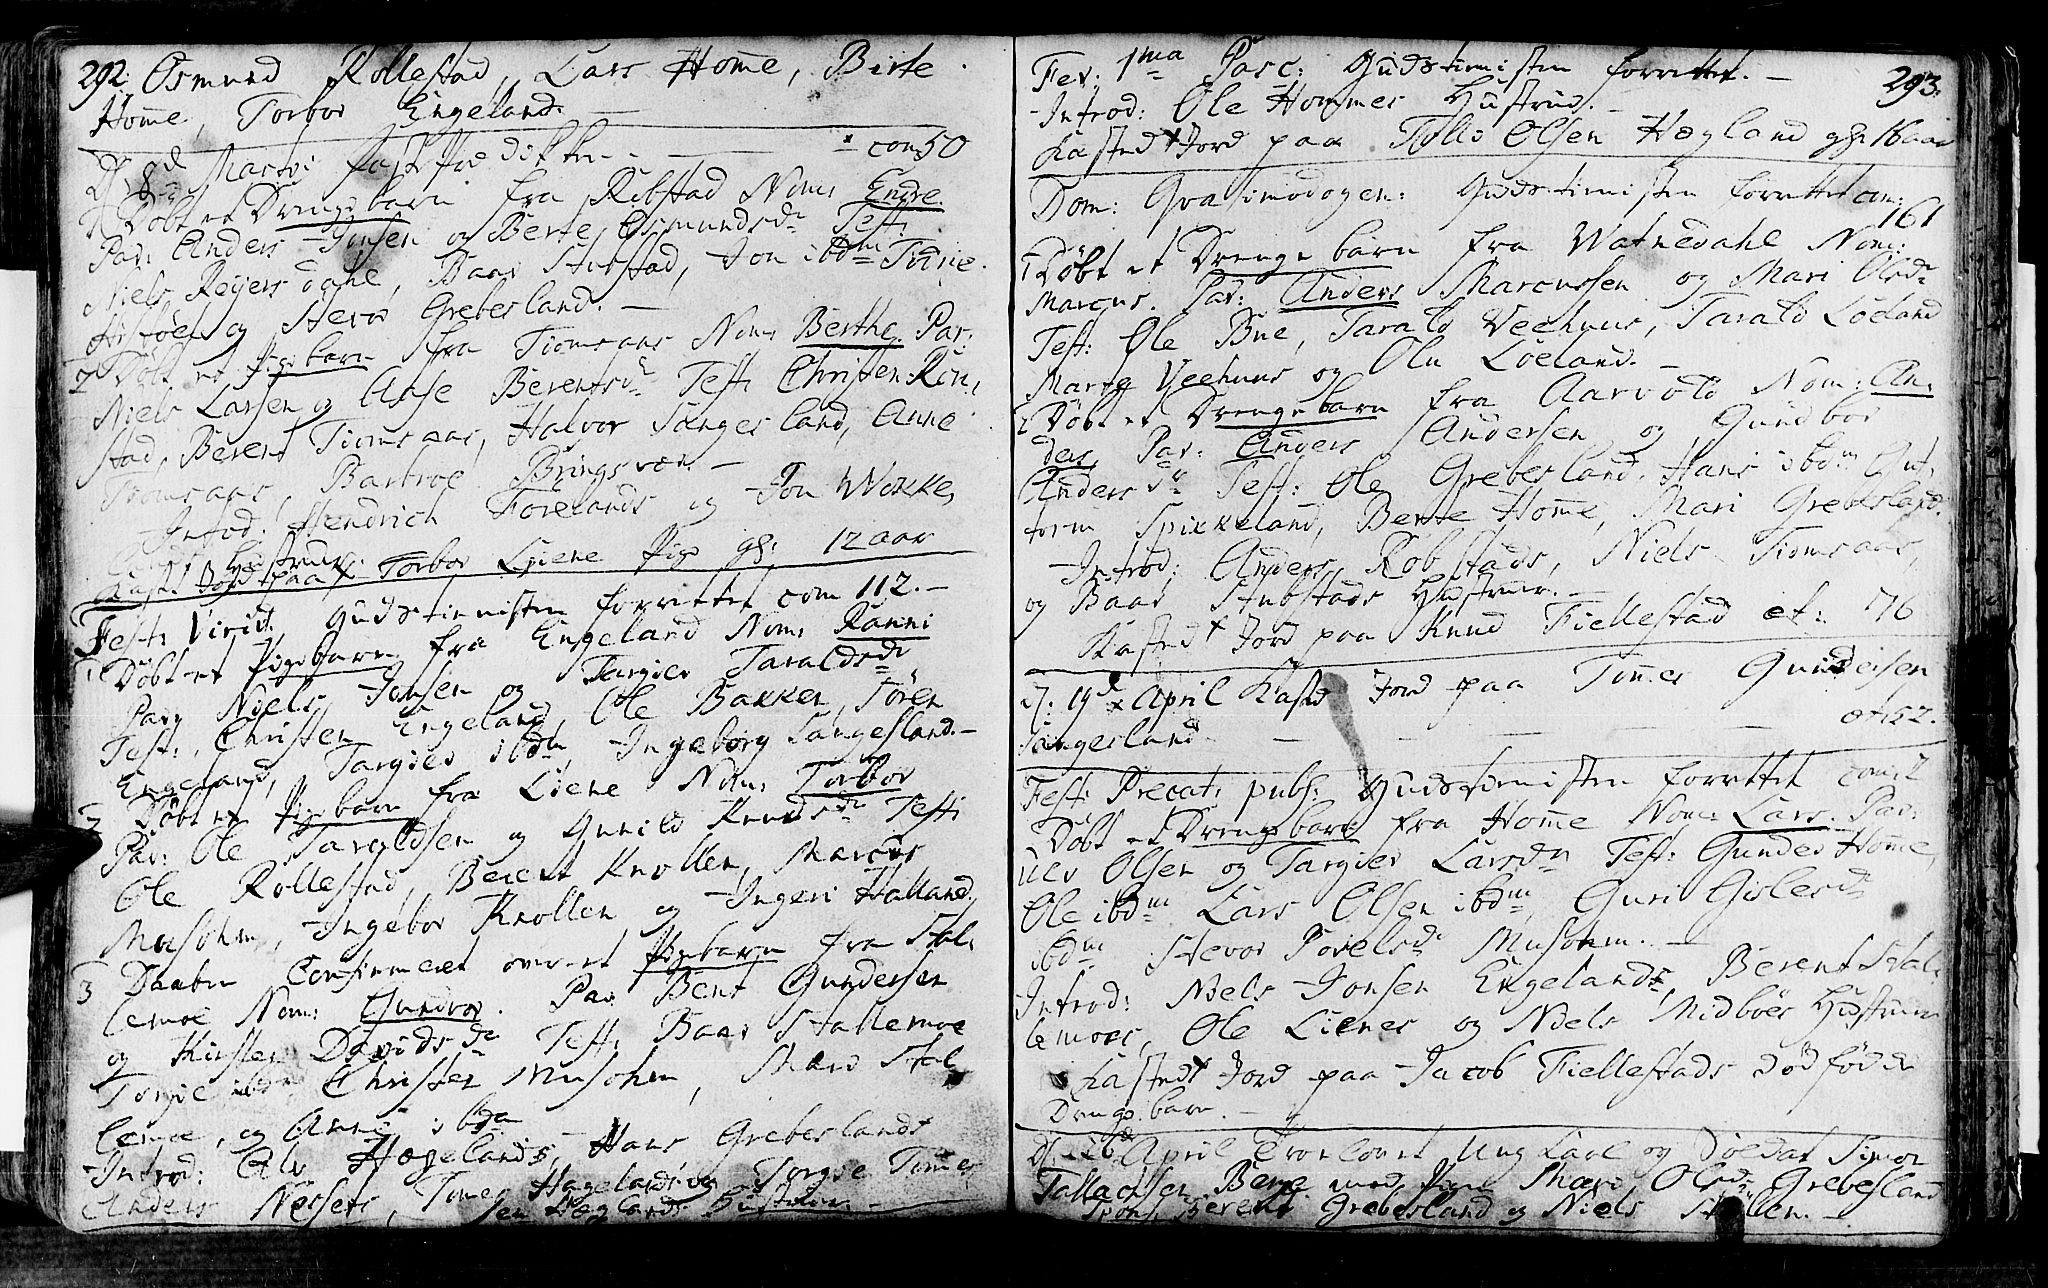 292. Osmund Rollestad, Lars Home, Birte
Home, Torbor Engeland.
D. 18d Martii fastprædiken com 50
1 Døbt et Drengebarn fra Robstad Nom: Endre.
Par: Anders Jonsen og Berte Osmundsdr Test:
Niels Reiersdahl, Baar Stubstad, Jon ibdm
og Hævor Grebesland.
2 Døbt et Pigebarn fra Tiomsaas Nom: Berthe. Par:
Niels Larsen og Aase Berentsdr Test: Christen Røn,
stad, Berent Tiomsaas, Halvor Sangesland, Anne
Tiomsaas, Barbroe Bringsvær.
Introd: Hendrich Forelands og Jon Wokke,
Hustruer.
Kast Jord paa Torbor Liene Pige gl: 12 aar
Fest: Virid. Gudstienisten forrettet com 112.
1 Døbt et Pigebarn fra Engeland Nom: Ranni
Par: Niels Jonsen og Targier Taraldsdr
Test: Christen Engeland, Ole Bakken, Søren
Engeland, Targier ibdm Ingeborg Sangesland.
2 Døbt et Pigebarn fra Liene Nom: Torbor
Par: Ole Taraldsen og Gunild Knudsdr Test:
Ole Rollestad, Berent Knollen, Marcus
Musohm, Ingebor Knollen og Ingeri Halland,
3 Daaben Confirmeret over et Pigebarn fra Stal,
lemoe Nom: Gundvor. Par: Bent Gundersen
og Kirsten Davidsdr Test: Baar Stallemoe
Torgie ibdm Christen Musohm, Mari Stal
lemoe, og Anne ibdm
Introd: Ole Hægelands, Hans Grebeslands
Anders Nessets, Tomes Hægelands og Torgie Tomes
sen Hæglands Hustruer.
293.
Fer: 1ma Pasc: Gudstienisten forrettet.
Introd: Ole Hommes Hustrue.
Kasted Jord paa Tolle Olsen Hægland gl: 16 aar
Dom: Qvasimodogen: Gudstienisten forrettet com:
161
1 Døbt et Drengebarn fra Watnedahl Nom:
Marcus. Par: Anders Marcussen og Mari Olsdr
Test: Ole Bue, Tarald Veehuus, Tarald Løeland
Marte Veehuus og Olu Løeland.
2 Døbt et Drengebarn fra Aarvold Nom: An,
ders Par: Anders Andersen og Gundbor
Andersdr Test: Ole Grebesland, Hans ibdm Gut,
torm Spikkeland, Berte Home, Mari Grebesland.
Introd: Anders Robstads, Niels Tiomsaas,
og Baar Stubstads Hustruer.
Kasted Jord paa Knud Fiellestad et: 76
D. 19d April Kasted Jord paa Tomes Gundersen
Sangesland et: 52.
Fest: Precat: publ: Gudstienisten forrettet com: 2
Døbt et Drengebarn fra Home Nom: Lars. Par:
Ulv Olsen og Targier Larsdr Test: Gunder Home,
Ole ibdm Lars Olsen ibdm, Guri Gislesdr
ibdm Hævor Povelsdr Musohm.
Introd: Niels Jonsen Engelands, Berent Stal,
lemoes, Ole Lienes og Niels Midboes Hustruer
Kasted Jord paa Jacob Fiellestads dødføde
Drengebarn.
D. April Trolovet Ung Karl og Soldat Simon
Tallachsen Berge med Pige Mari Olsdr Grebesland
Spon: Berent Grebesland og Niels